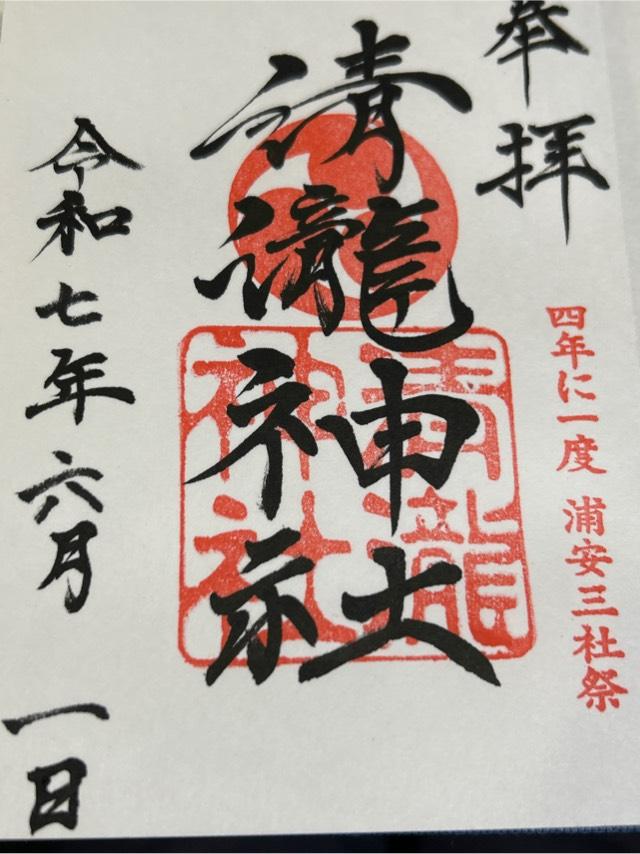 奉拝
四年に一度 浦安三社祭
清瀧神社
清瀧神社
令和七年六月一日